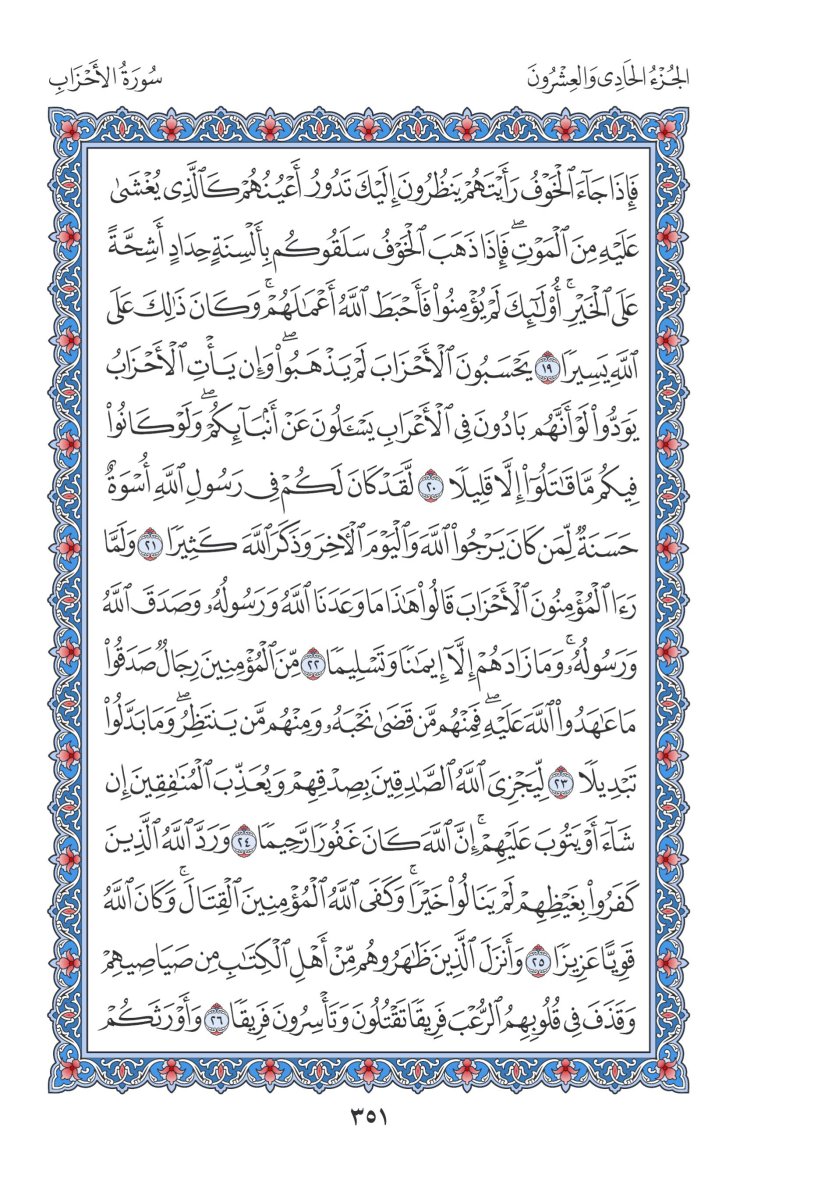 الجُزْءُ الحَادِى وَالعِشْرُونَ
سُورَةُ الأَحْزَابِ
فَإِذَا جَآءَ ٱلْخَوْفُ رَأَيْتَهُمْ يَنظُرُونَ إِلَيْكَ تَدُورُ أَعْيُنُهُمْ كَٱلَّذِى يُغْشَىٰ
عَلَيْهِ مِنَ ٱلْمَوْتِ ۖ فَإِذَا ذَهَبَ ٱلْخَوْفُ سَلَقُوكُم بِأَلْسِنَةٍ حِدَادٍ أَشِحَّةً
عَلَى ٱلْخَيْرِ ۚ أُو۟لَـٰٓئِكَ لَمْ يُؤْمِنُوا۟ فَأَحْبَطَ ٱللَّهُ أَعْمَـٰلَهُمْ ۚ وَكَانَ ذَٰلِكَ عَلَى
ٱللَّهِ يَسِيرًا ١٩ يَحْسَبُونَ ٱلْأَحْزَابَ لَمْ يَذْهَبُوا۟ ۖ وَإِن يَأْتِ ٱلْأَحْزَابُ
يَوَدُّوا۟ لَوْ أَنَّهُم بَادُونَ فِى ٱلْأَعْرَابِ يَسْـَٔلُونَ عَنْ أَنۢبَآئِكُمْ ۖ وَلَوْ كَانُوا۟
فِيكُم مَّا قَـٰتَلُوٓا۟ إِلَّا قَلِيلًا ٢٠ لَّقَدْ كَانَ لَكُمْ فِى رَسُولِ ٱللَّهِ أُسْوَةٌ
حَسَنَةٌ لِّمَن كَانَ يَرْجُوا۟ ٱللَّهَ وَٱلْيَوْمَ ٱلْـَٔاخِرَ وَذَكَرَ ٱللَّهَ كَثِيرًا ٢١ وَلَمَّا
رَءَا ٱلْمُؤْمِنُونَ ٱلْأَحْزَابَ قَالُوا۟ هَـٰذَا مَا وَعَدَنَا ٱللَّهُ وَرَسُولُهُۥ وَصَدَقَ ٱللَّهُ
وَرَسُولُهُۥ ۚ وَمَا زَادَهُمْ إِلَّآ إِيمَـٰنًا وَتَسْلِيمًا ٢٢ مِّنَ ٱلْمُؤْمِنِينَ رِجَالٌ صَدَقُوا۟
مَا عَـٰهَدُوا۟ ٱللَّهَ عَلَيْهِ ۖ فَمِنْهُم مَّن قَضَىٰ نَحْبَهُۥ وَمِنْهُم مَّن يَنتَظِرُ ۖ وَمَا بَدَّلُوا۟
تَبْدِيلًا ٢٣ لِّيَجْزِىَ ٱللَّهُ ٱلصَّـٰدِقِينَ بِصِدْقِهِمْ وَيُعَذِّبَ ٱلْمُنَـٰفِقِينَ إِن
شَآءَ أَوْ يَتُوبَ عَلَيْهِمْ ۚ إِنَّ ٱللَّهَ كَانَ غَفُورًا رَّحِيمًا ٢٤ وَرَدَّ ٱللَّهُ ٱلَّذِينَ
كَفَرُوا۟ بِغَيْظِهِمْ لَمْ يَنَالُوا۟ خَيْرًا ۚ وَكَفَى ٱللَّهُ ٱلْمُؤْمِنِينَ ٱلْقِتَالَ ۚ وَكَانَ ٱللَّهُ
قَوِيًّا عَزِيزًا ٢٥ وَأَنزَلَ ٱلَّذِينَ ظَـٰهَرُوهُم مِّنْ أَهْلِ ٱلْكِتَـٰبِ مِن صَيَاصِيهِمْ
وَقَذَفَ فِى قُلُوبِهِمُ ٱلرُّعْبَ فَرِيقًا تَقْتُلُونَ وَتَأْسِرُونَ فَرِيقًا ٢٦ وَأَوْرَثَكُمْ
٣٥١